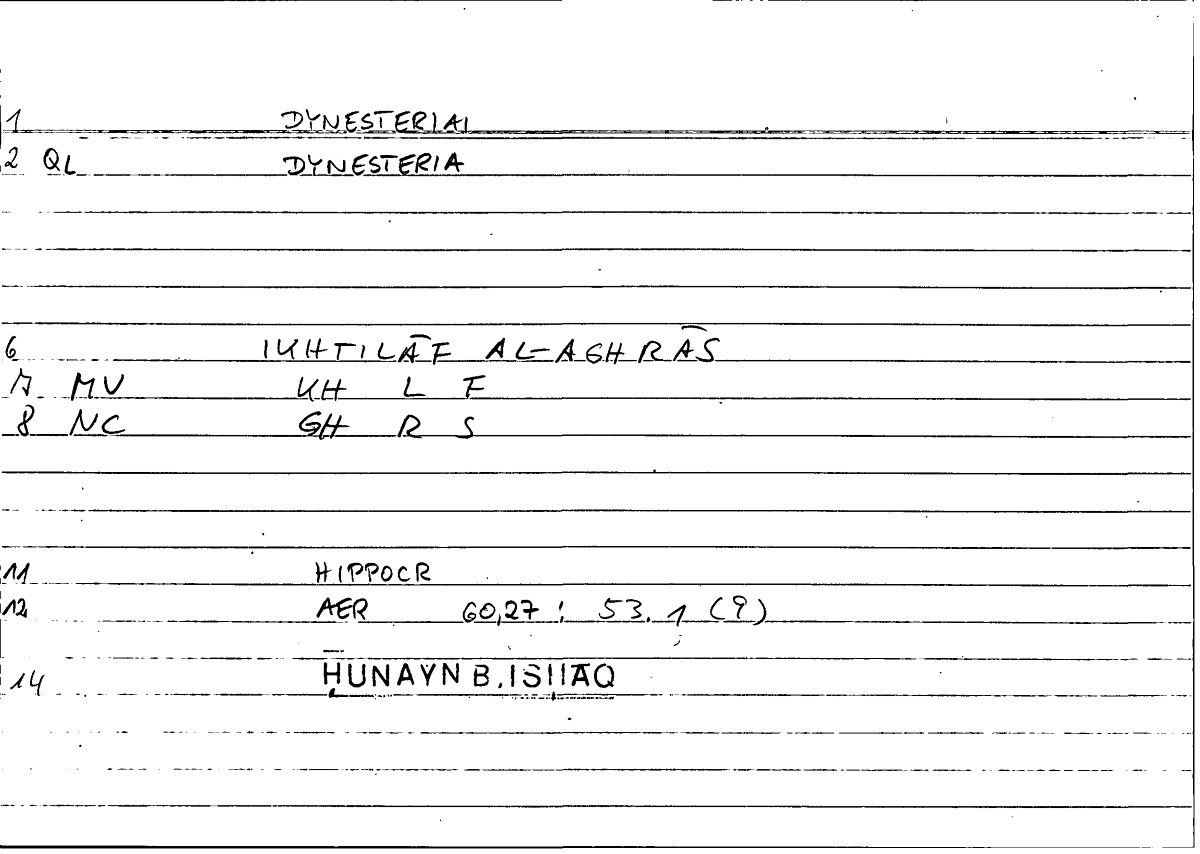 1 DYNESTERIAI
2 QL DYNESTERIA
6 IKHTILĀF AL-AGHRĀS
7 MV KH L F
8 NC GH R S
11 HIPPOCR
12 AER 60,27 ; 53.1 (9)
14 ḤUNAYN B. ISḤĀQ